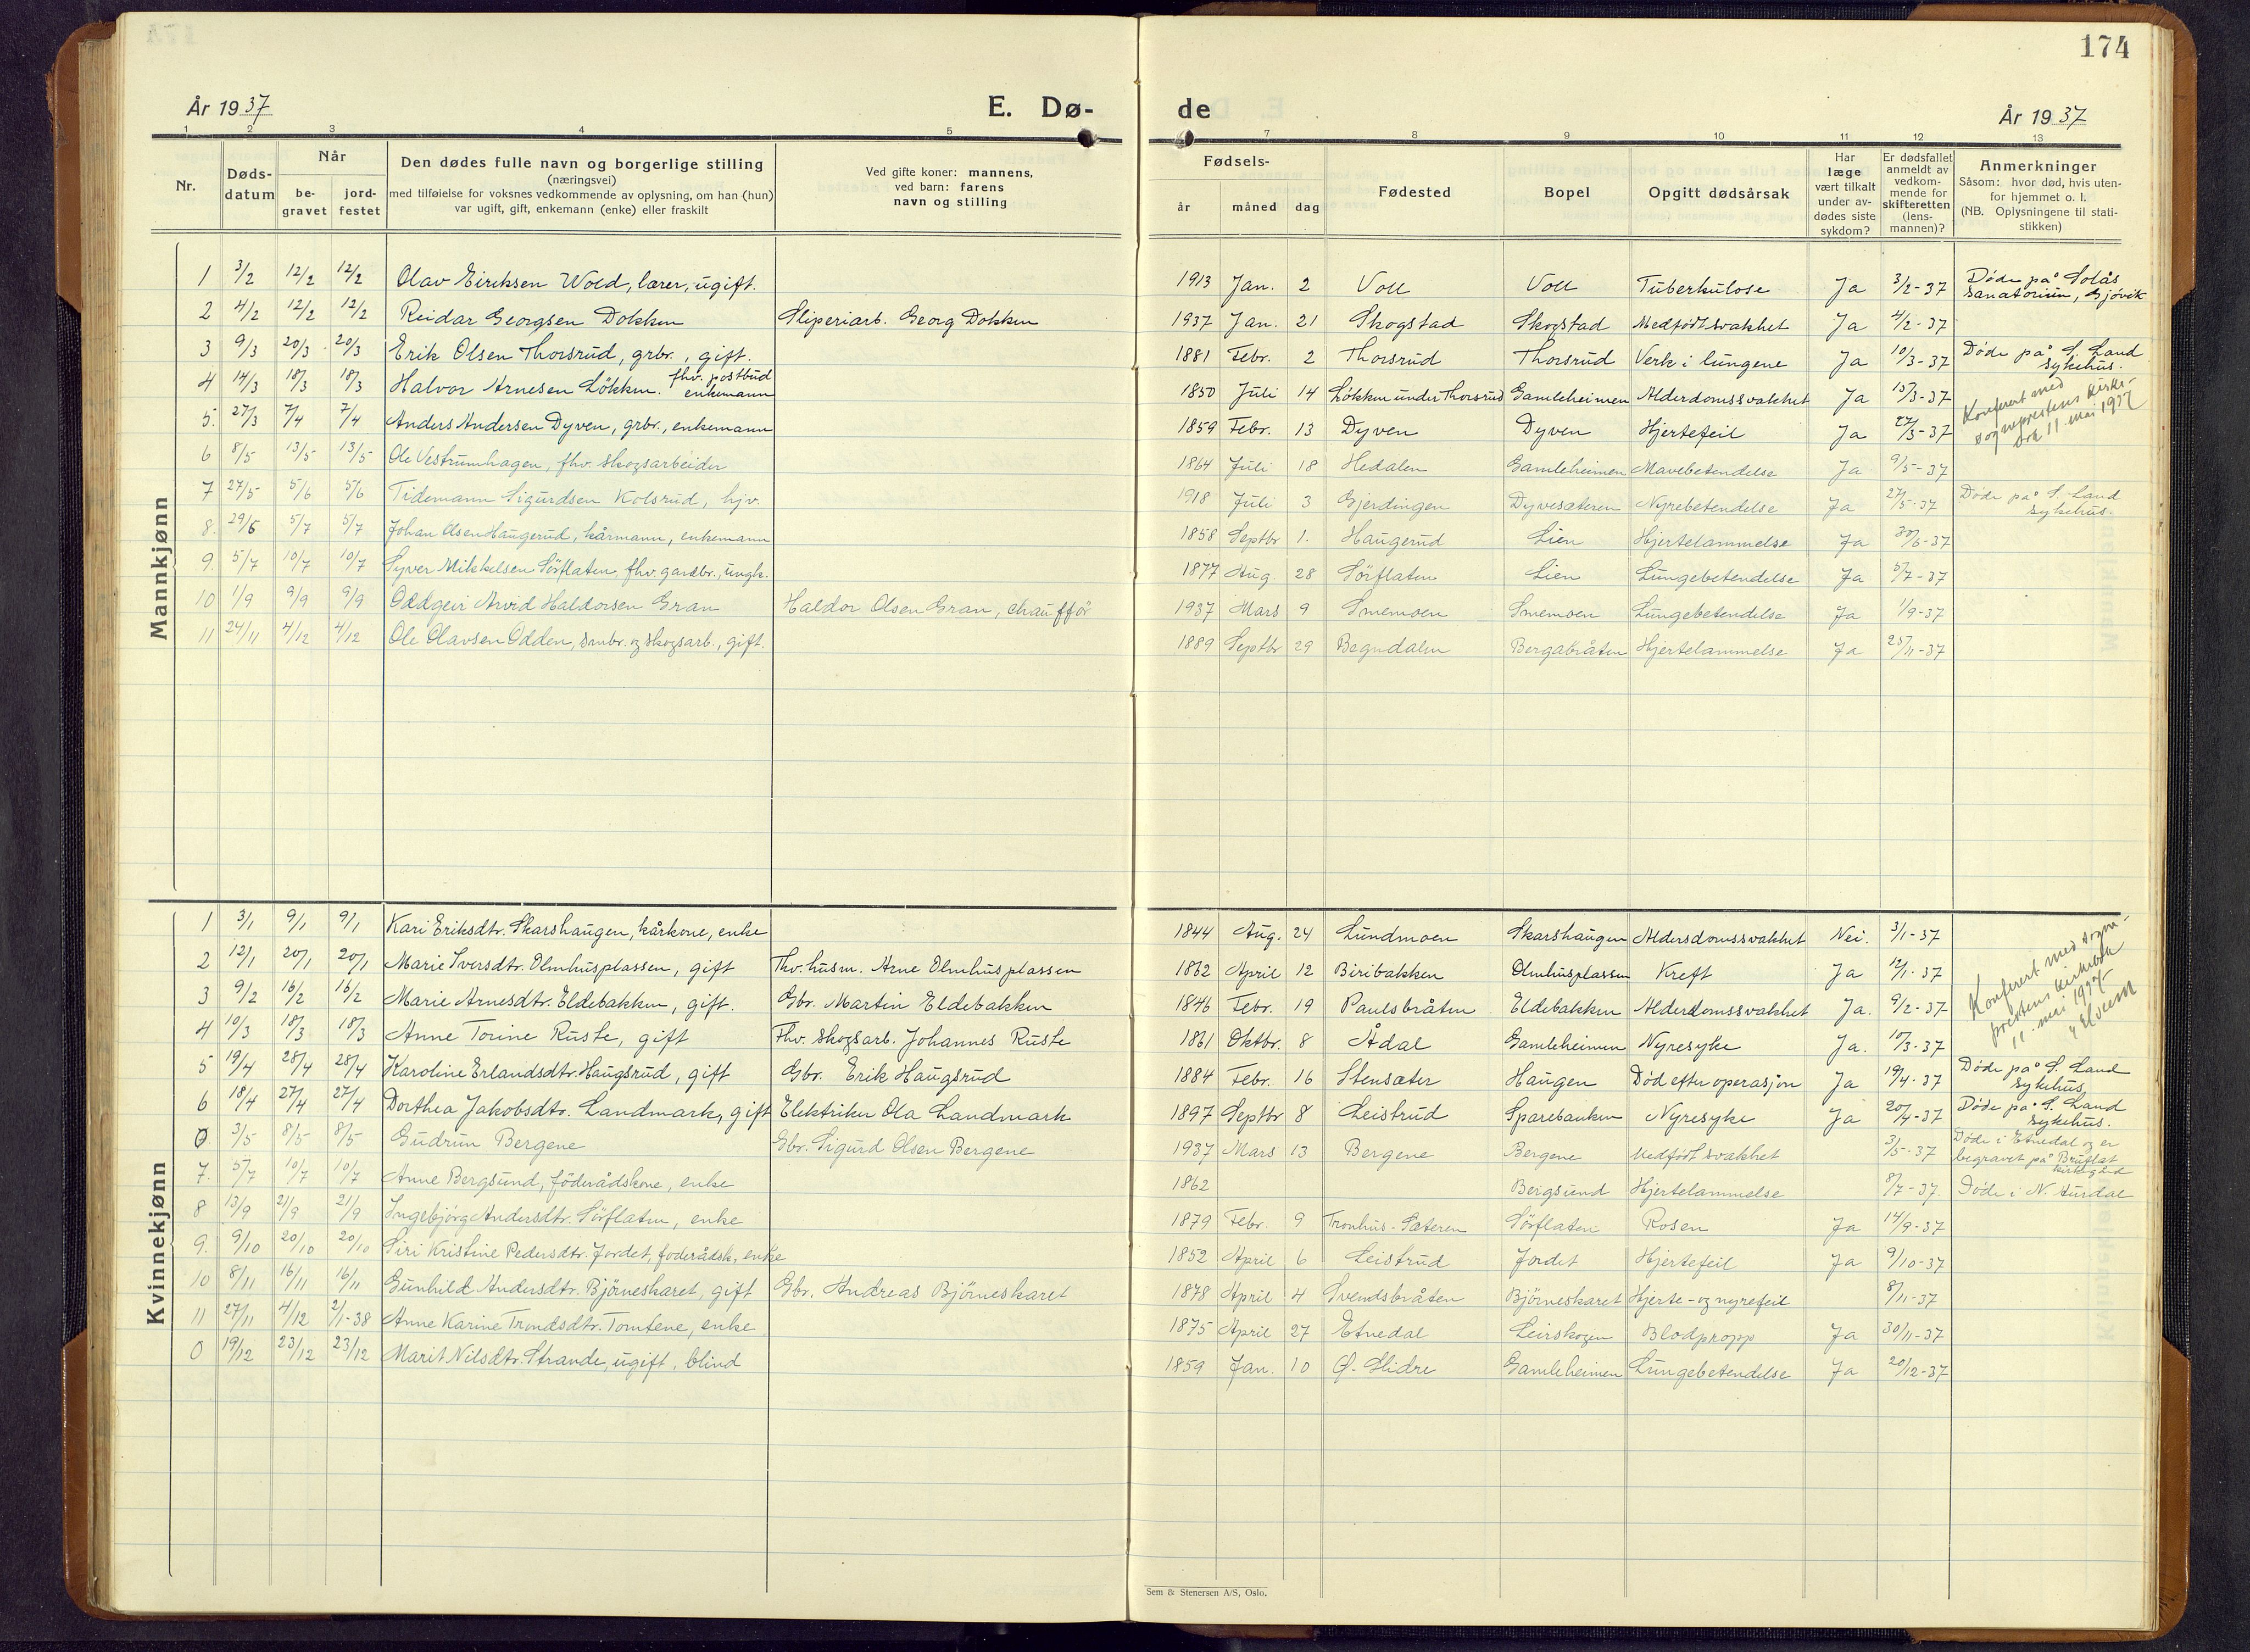 174
År 1937
E. Dø-
de
År 1937
1 2 3 4 5 7 8 9 10 11 12 13
Nr.
Døds-
datum
Når
be-
gravet
jord-
festet
Den dødes fulle navn og borgerlige stilling
(næringsvei)
med tilføielse for voksnes vedkommende av oplysning, om han (hun)
var ugift, gift, enkemann (enke) eller fraskilt
Ved gifte koner: mannens,
ved barn: farens
navn og stilling
Fødsels-
år måned dag
Fødested
Bopel
Opgitt dødsårsak
Har
læge
vært tilkalt
under av-
dødes siste
sykdom?
Er dødsfallet
anmeldt av
vedkom-
mende for
skifteretten
(lens-
mannen)?
Anmerkninger
Såsom: hvor død, hvis uten-
for hjemmet o. l.
(NB. Oplysningene til stati-
stikken)
Mannkjønn
1 3/2 12/2 12/2 Olav Eiriksen Wold, lærer, ugift. 1913 Jan. 2 Voll Voll Tuberkulose Ja 3/2-37 Døde på Solås
sanatorium, Gjøvik
2 4/2 12/2 12/2 Reidar Georgsen Dokken Sliperiarb. Georg Dokken 1937 Jan. 21 Skogstad Skogstad Medfødt svakhet Ja 4/2-37
3 9/3 20/3 20/3 Erik Olsen Thorsrud, grbr., gift. 1881 Febr. 2 Thorsrud Thorsrud Verk i lungene Ja 10/3-37 Døde på S. Land
sykehus.
4 14/3 18/3 18/3 Halvor Arnesen Løkken. fhv. postbud
enkemann 1850 Juli 14 Løkken under Thorsrud Gamleheimen Alderdomssvakhet Ja 15/3-37
5. 27/3 7/4 7/4 Anders Andersen Dyven, grbr., enkemann 1859 Febr. 13 Dyven Dyven Hjertefeil Ja 27/3-37
Konferert med
sogneprestens kirke-
bok 11. mai 1937
6 8/5 13/5 13/5 Ole Vestrumhagen, fhv. skogsarbeider 1864 Juli 18 Hedalen Gamleheimen Mavebetendelse Ja 9/5-37
7 27/5 5/6 5/6 Tidemann Sigurdsen Kolsrud, hjv. 1918 Juli 3 Gjerdingen Dyvesæteren Nyrebetendelse Ja 27/5-37 Døde på S. Land
sykehus.
8. 29/6 5/7 5/7 Johan Olsen Haugerud, kårmann, enkemann 1858 Septbr 1. Haugerud Lien Hjertelammelse Ja 30/6-37
9. 5/7 10/7 10/7 Syver Mikkelsen Sörflaten, fhv. gardbr., ungk. 1877 Aug. 28 Sörflaten Lien Lungebetendelse Ja 5/7-37
10 1/9 9/9 9/9 Oddgeir Arvid Haldorsen Gran Haldor Olsen Gran, chauffør 1937 Mars 9 Smemoen Smemoen Lungebetendelse Ja 1/9-37
11 24/11 4/12 4/12 Ole Olavsen Odden, smbr. og skogsarb., gift. 1889 Septbr 29 Begndalen Bergabråten Hjertelammelse Ja 25/11-37
Kvinnekjønn
1 3/1 9/1 9/1 Kari Eriksdtr. Skarshaugen, kårkone, enke 1844 Aug. 24 Lundmoen Skarshaugen Aldersdomssvakhet Nei. 3/1-37
2 12/1 20/1 20/1 Marie Iversdtr. Olmhusplassen, gift Fhv. husm. Arne Olmhusplassen 1862 April 12 Biribakken Olmhusplassen Kreft Ja 12/1-37
3 9/2 16/2 16/2 Marie Arnesdtr. Eldebakken, gift. Gbr. Martin Eldebakken 1846 Febr. 19 Paulsbråten Eldebakken Alderdomssvakhet Ja. 9/2-37
4 10/3 18/3 18/3 Anne Torine Ruste, gift Fhv. skogsarb. Johannes Ruste 1861 Oktbr. 8 Ådal Gamleheimen Nyresyke Ja. 10/3-37
Konferert med sogne-
prestens kirkebok
11. mai 1937
5 19/4 28/4 28/4 Karoline Erlandsdtr. Haugsrud, gift Gbr. Erik Haugsrud 1884 Febr. 16 Stensæter Haugen Död efter operasjon Ja 19/4-37 Døde på S. Land
sykehus
6 18/4 27/4 27/4 Dorthea Jakobsdtr. Landmark, gift Elektriker Ola Landmark 1897 Septbr 8 Leistrud Sparebanken Nyresyke Ja 20/4-37 Døde på S. Land
sykehus.
0. 3/5 8/5 8/5 Gudrun Bergene Gbr. Sigurd Olsen Bergene 1937 Mars 13 Bergene Bergene Medfødt svakhet 3/5-37 Døde i Etnedal og er
begravet på Bruflat
kirkegård
7. 5/7 10/7 10/7 Anne Bergsund, föderådskone, enke 1862 Bergsund Hjertelammelse 8/7-37 Døde i N. Aurdal
8 13/9 21/9 21/9 Ingebjörg Andersdtr. Sörflaten, enke 1879 Febr. 9 Tronhus-Sæteren Sörflaten Rosen Ja 14/9-37
9. 9/10 20/10 20/10 Siri Kristine Pedersdtr. Jordet, foderådsk., enke 1852 April 6 Leistrud Jordet Hjertefeil Ja 9/10-37
10 8/11 16/11 16/11 Gunhild Andersdtr. Björneskaret, gift Gbr. Andreas Björneskaret 1878 April 4 Svendsbråten Björneskaret Hjerte- og nyrefeil 8/11-37
11 27/11 4/12 2/1-38 Anne Karine Trondsdtr. Tomtene, enke 1875 April 27 Etnedal Leirskogen Blodpropp Ja 30/11-37
0 19/12 23/12 23/12 Marit Nilsdtr. Strande, ugift, blind 1859 Jan. 10 Ø. Slidre Gamleheimen Lungebetendelse Ja 20/12-37
Sem & Stenersen A/S, Oslo.